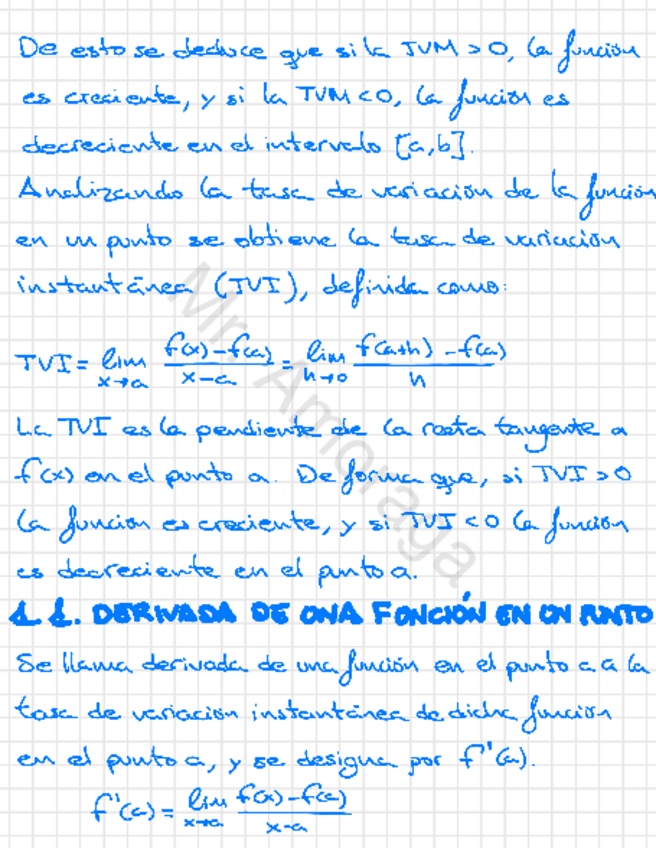 De esto se deduce que si la TVM > 0, la función
es creciente, y si la TVM < 0, la función es
decreciente en el intervalo [a,b].
Analizando la tasa de variación de la función
en un punto se obtiene la tasa de variación
instantánea (TVI), definida como:
TVI = lim x→a (f(x)-f(a))/(x-a) = lim h→0 (f(a+h)-f(a))/h
La TVI es la pendiente de la recta tangente a
f(x) en el punto a. De forma que, si TVI > 0
la función es creciente, y si TVI < 0 la función
es decreciente en el punto a.
1.1. DERIVADA DE UNA FUNCIÓN EN UN PUNTO
Se llama derivada de una función en el punto a a la
tasa de variación instantánea de dicha función
en el punto a, y se designa por f'(a).
f'(a) = lim x→a (f(x)-f(a))/(x-a)
Mr. Amoraga